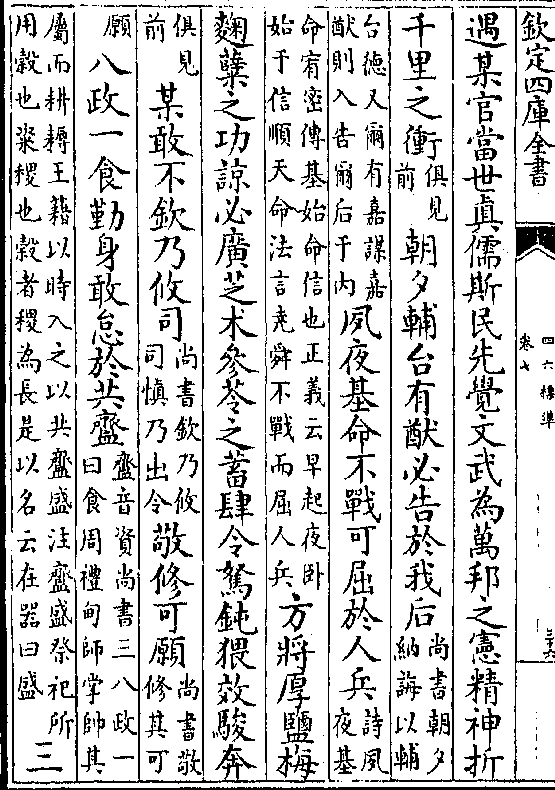 欽定四庫全書
四六標準
卷七
三十六
遇某官當世眞儒斯民先覺文武為萬邦之憲精神折
千里之衝俱見前朝夕輔台有猷必告於我后尚書朝夕納誨以輔
台德又爾有嘉謀嘉猷則入告爾后于内夙夜基命不戰可屈於人兵詩夙夜基
命宥密傳基始命信也正義云早起夜卧始于信順天命法言堯舜不戰而屈人兵方將厚鹽梅
麴糵之功諒必廣芝术參苓之蓄肆令駑鈍猥效駿奔
俱見前某敢不欽乃攸司尚書欽乃攸司慎乃出令敬修可願尚書敬修其可
願八政一食勤身敢怠於共齍齍音資尚書三八政一曰食周禮甸師掌帥其
屬而耕耨王籍以時入之以共齍盛注齍盛祭祀所用穀也粢稷也穀者稷為長是以名云在器曰盛三